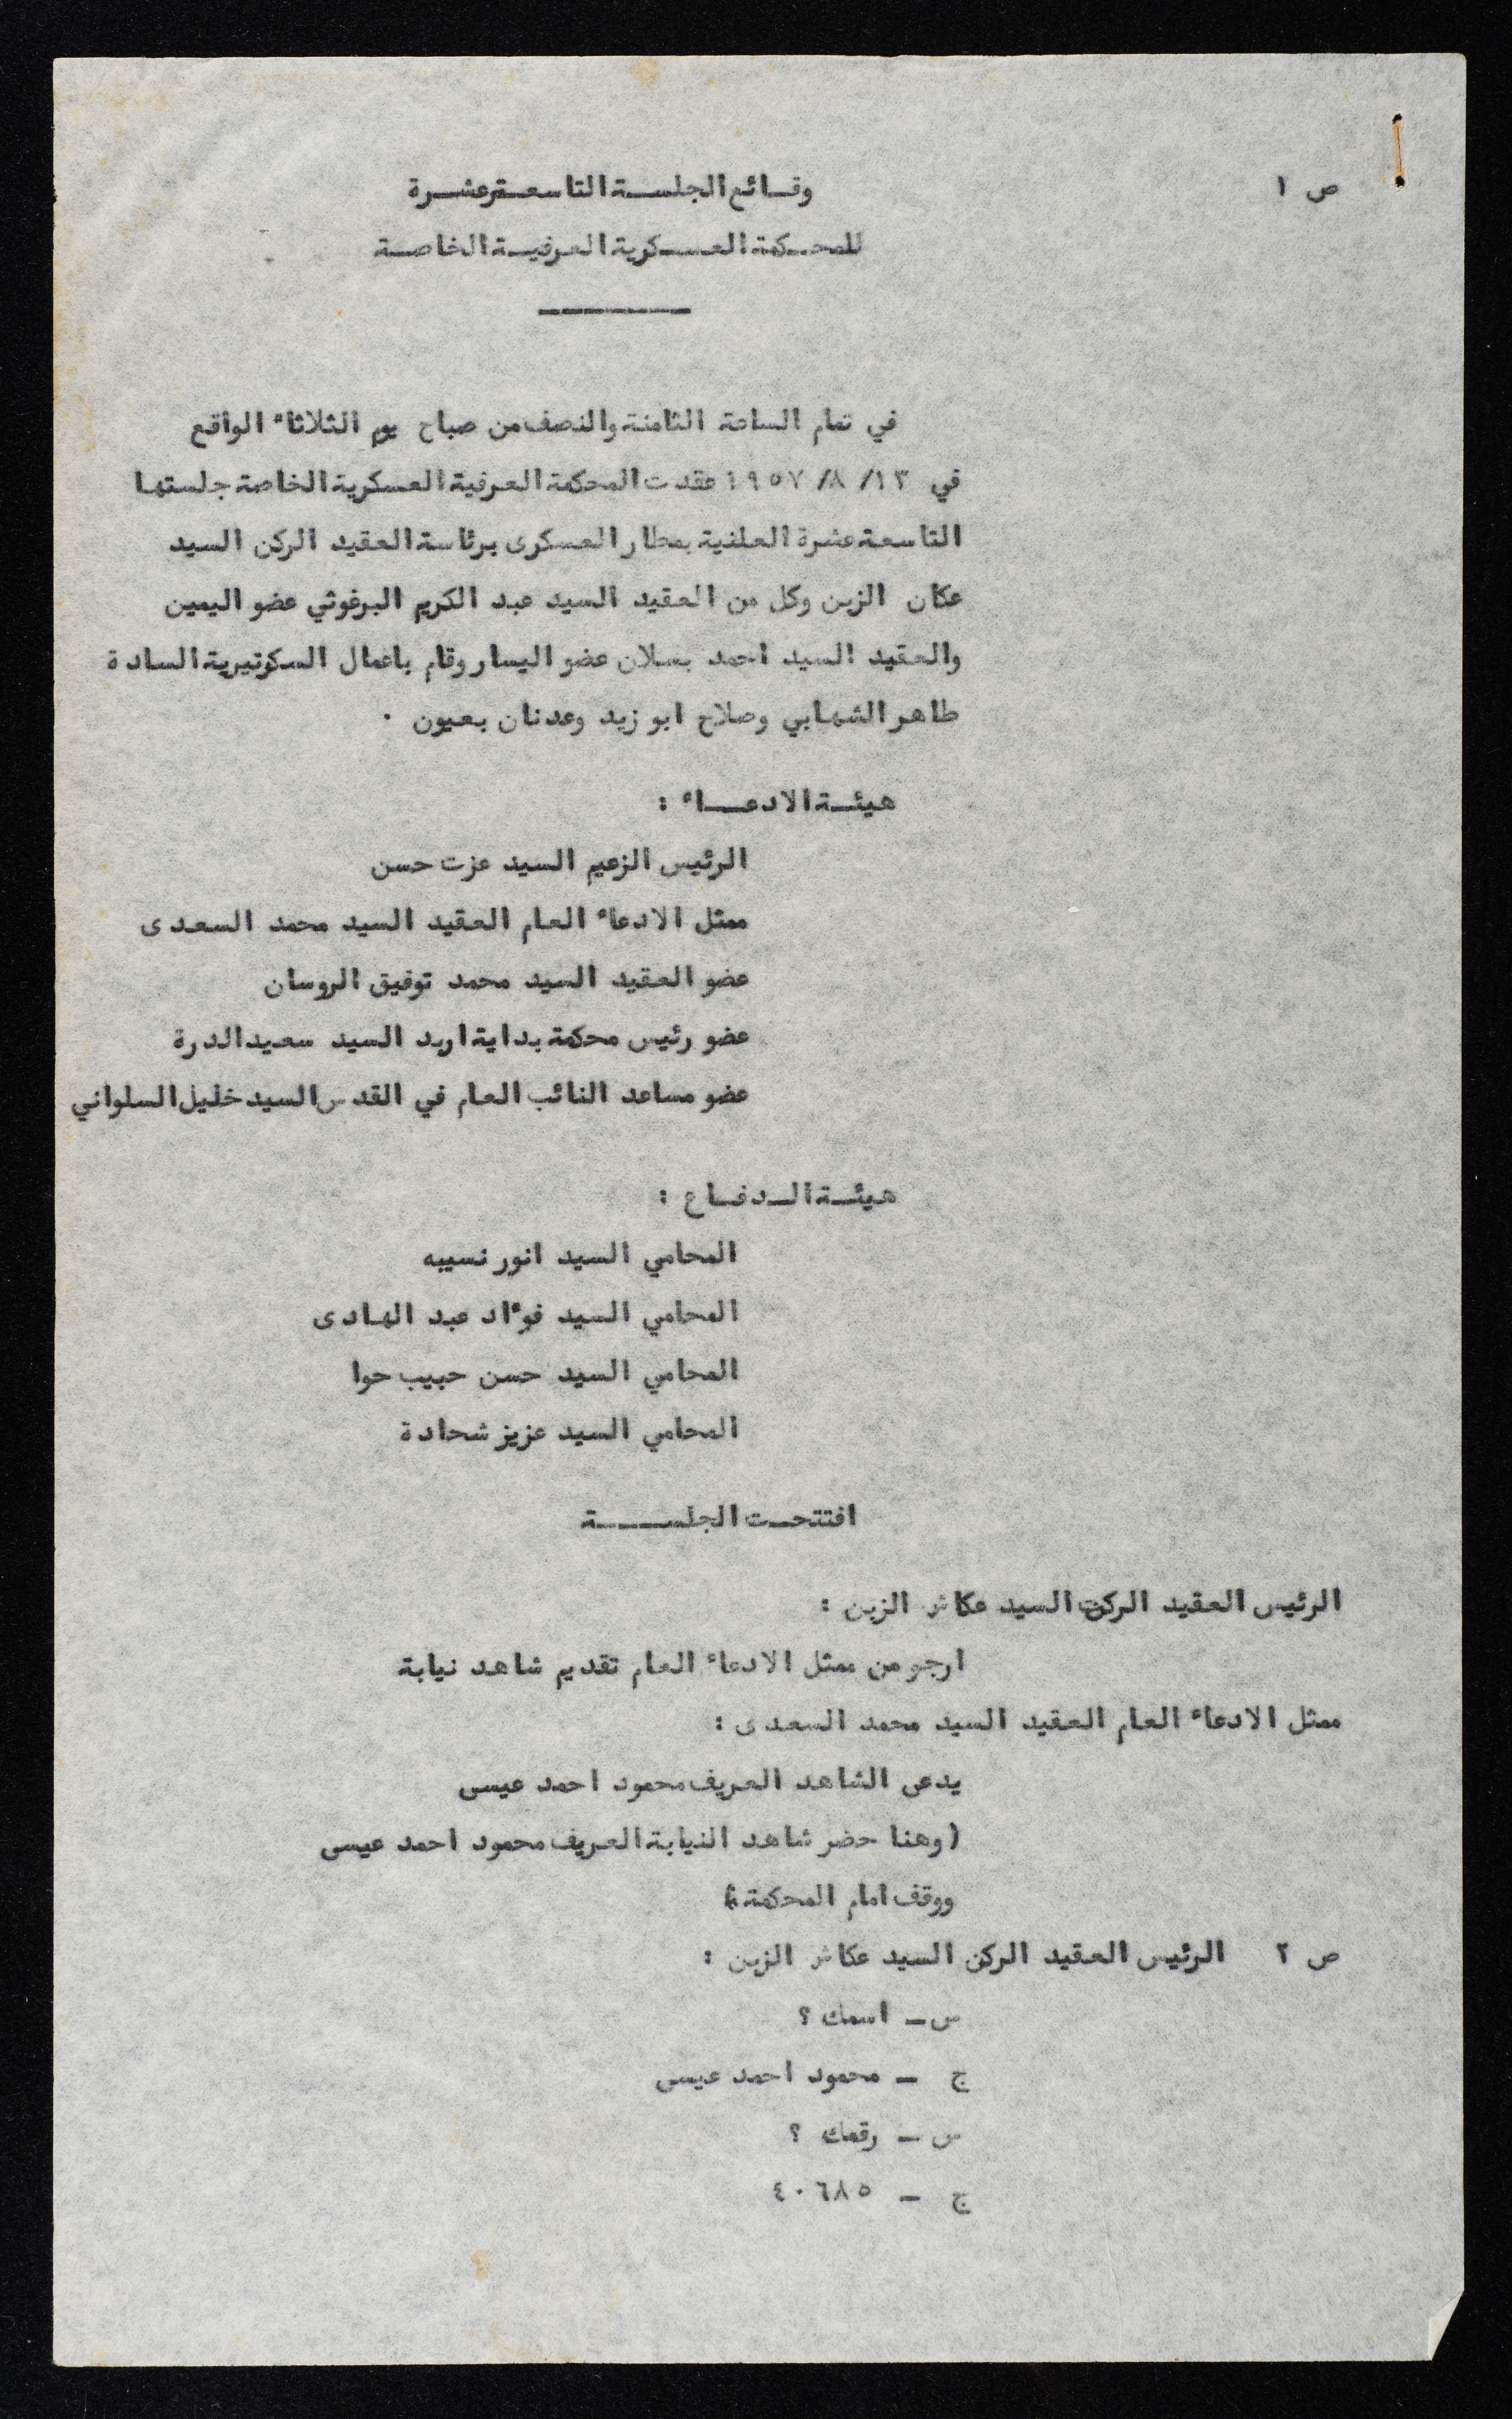 ص ١
وقـائع الجلســة التاسعـة عشـرة
للمحـكمة العسـكرية العرفيـة الخاصـة
في تمام الساعة الثامنة والنصف من صباح يوم الثلاثاء الواقع
في ١٣/ ٨/ ١٩٥٧ عقدت المحكمة العرفية العسكرية الخاصة جلستها
التاسعة عشرة العلنية بمطار العسكرى برئاسة العقيد الركن السيد
عكاش الزبن وكل من العقيد السيد عبد الكريم البرغوثي عضو اليمين
والعقيد السيد احمد بسلان عضو اليسار وقام باعمال السكرتيرية السادة
طاهر الشهابي وصلاح ابو زيد وعدنان بعيون .
هيئـة الادعــاء :
الرئيس الزعيم السيد عزت حسن
ممثل الادعاء العام العقيد السيد محمد السعدى
عضو العقيد السيد محمد توفيق الروسان
عضو رئيس محكمة بداية اربد السيد سعيد الدرة
عضو مساعد النائب العام في القدس السيد خليل السلواني
هيئـة الـدفـاع :
المحامي السيد انور نسيبه
المحامي السيد فوءاد عبد الهادى
المحامي السيد حسن حبيب حوا
المحامي السيد عزيز شحادة
افتتحـت الجلســـة
الرئيس العقيد الركن السيد عكاش الزبن :
ارجو من ممثل الادعاء العام تقديم شاهد نيابة
ممثل الادعاء العام العقيد السيد محمد السعدى :
يدعى الشاهد العريف محمود احمد عيسى
( وهنا حضر شاهد النيابة العريف محمود احمد عيسى
ووقف امام المحكمة )
ص ٢ الرئيس العقيد الركن السيد عكاش الزبن :
س ـ اسمك ؟
ج ـ محمود احمد عيسى
س ـ رقمك ؟
ج ـ ٤٠٦٨٥